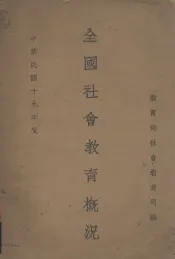 教育部社會教育司編
全國社會教育概況
中華民國十九年度